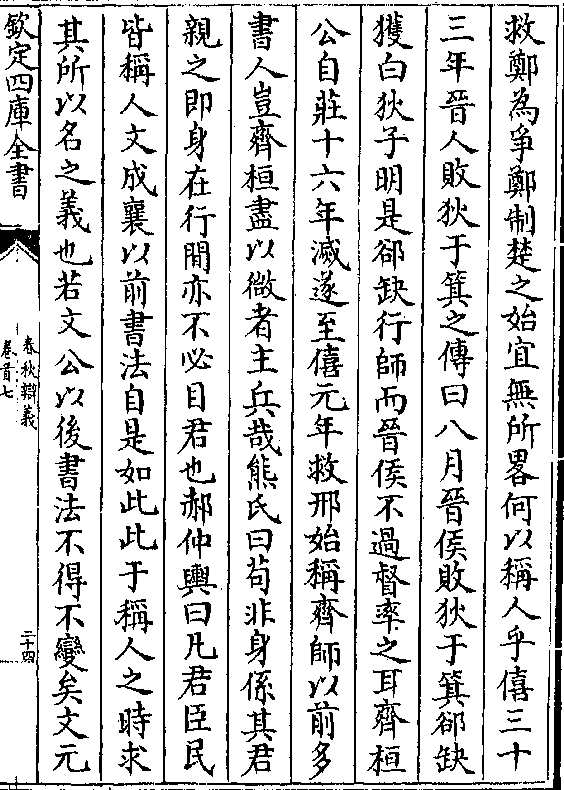 救鄭為爭鄭制楚之始宜無所畧何以稱人乎僖三十
三年晉人敗狄于箕之傳曰八月晉侯敗狄于箕郤缺
獲白狄子明是郤缺行師而晉侯不過督率之耳齊桓
公自莊十六年滅遂至僖元年救邢始稱齊師以前多
書人豈齊桓盡以微者主兵哉熊氏曰苟非身係其君
親之即身在行間亦不必目君也郝仲輿曰凡君臣民
皆稱人文成襄以前書法自是如此此于稱人之時求
其所以名之義也若文公以後書法不得不變矣文元
欽定四庫全書
春秋辯義
卷首七
二十四